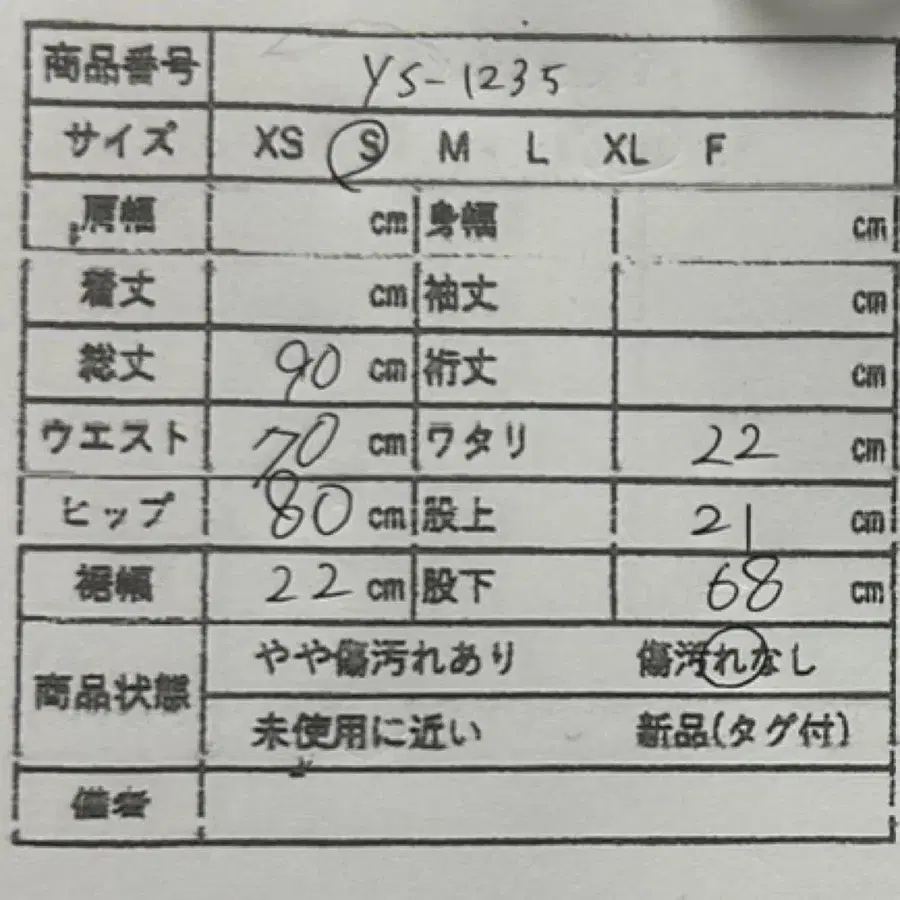 商品番号 YS-1235
サイズ XS S M L XL F
肩幅 cm 身幅 cm
着丈 cm 袖丈 cm
総丈 90 cm 裄丈 cm
ウエスト 70 cm ワタリ 22 cm
ヒップ 80 cm 股上 21 cm
裾幅 22 cm 股下 68 cm
商品状態 やや傷汚れあり 傷汚れなし
未使用に近い 新品(タグ付)
備考